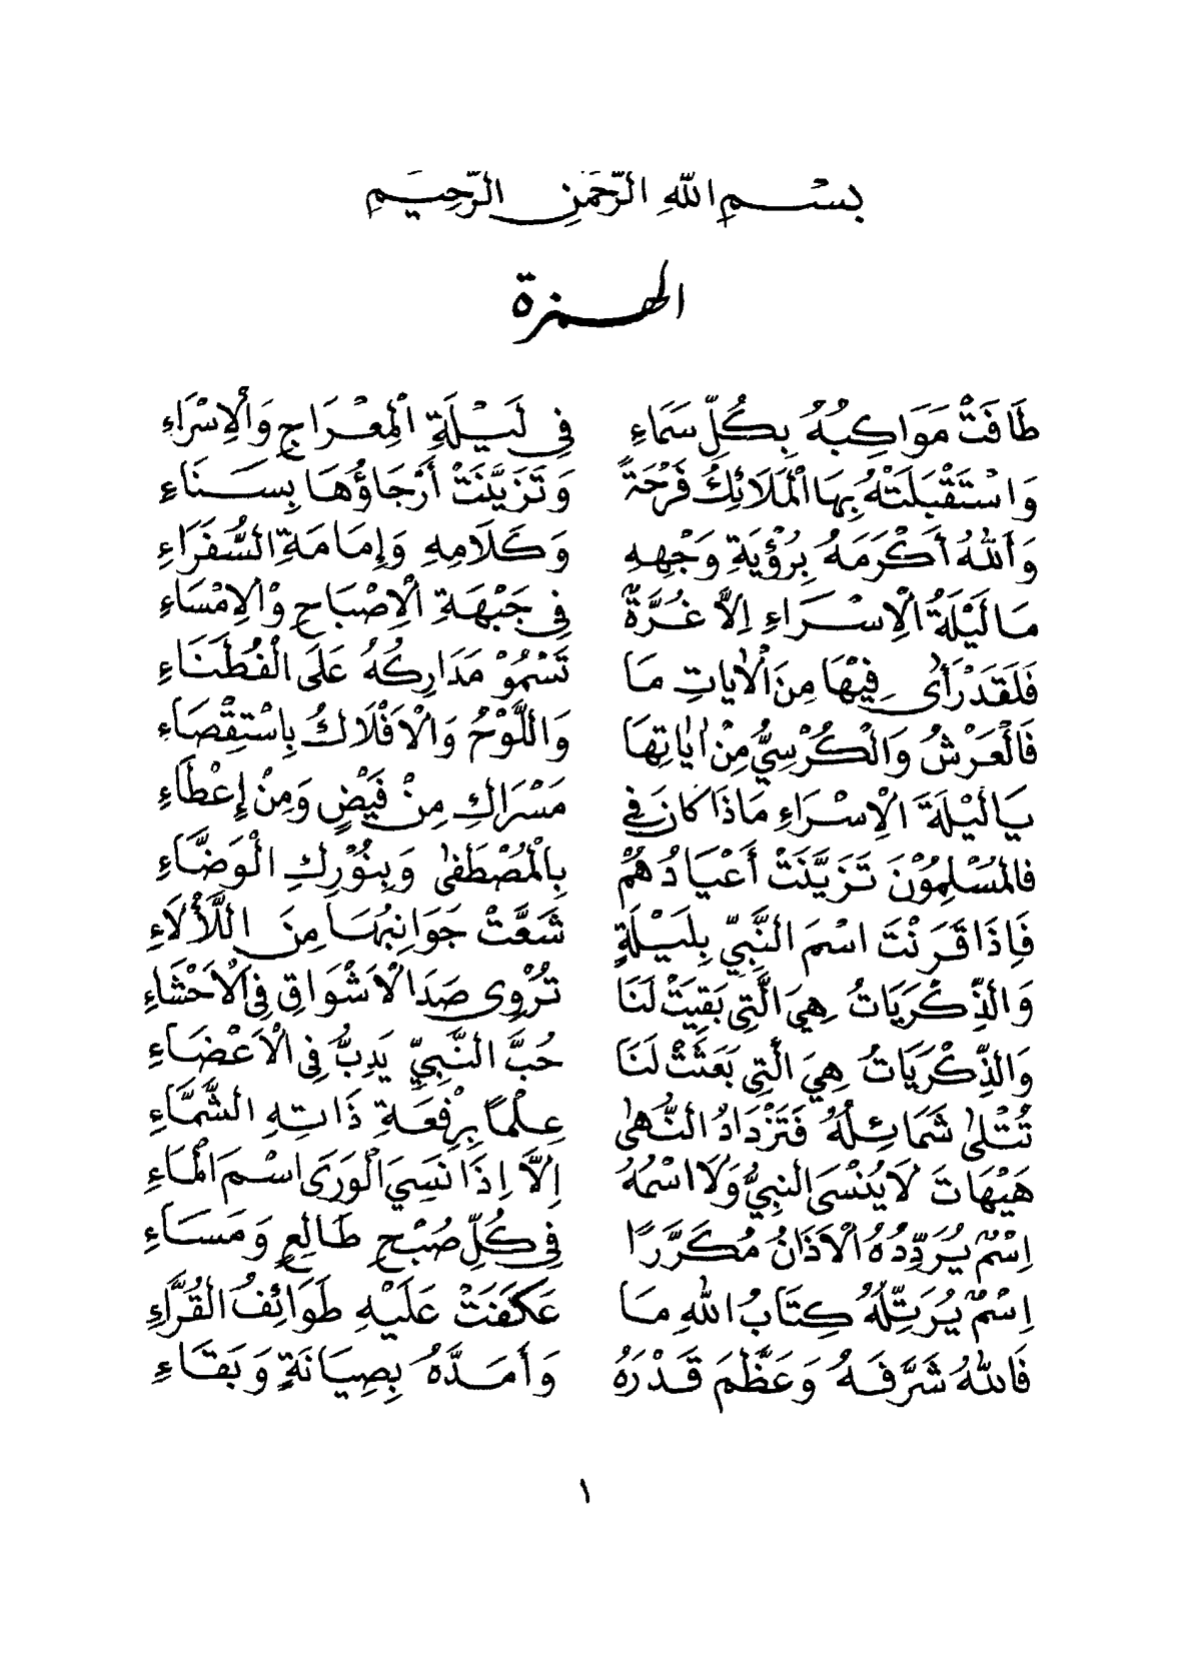 بِسْمِ اللهِ الرَّحْمَنِ الرَّحِيمِ
الهمزة
طَافَتْ مَوَاكِبُهُ بِكُلِّ سَمَاءِ فِي لَيْلَةِ الْمِعْرَاجِ وَالْاِسْرَاءِ
وَاسْتَقْبَلَتْهُ بِهَا الْمَلَائِكُ فَرْحَةً وَتَزَيَّنَتْ أَرْجَاؤُهَا بِسَنَاءِ
وَاللهُ أَكْرَمَهُ بِرُؤْيَةِ وَجْهِهِ وَكَلَامِهِ وَإِمَامَةِ السُّفَرَاءِ
مَا لَيْلَةُ الْاِسْرَاءِ اِلَّا غُرَّةٌ فِي جَبْهَةِ الْاِصْبَاحِ وَالْاِمْسَاءِ
فَلَقَدْ رَأَى فِيْهَا مِنَ الْاٰيَاتِ مَا تَسْمُوْ مَدَارِكُهُ عَلَى الْفُطَنَاءِ
فَالْعَرْشُ وَالْكُرْسِيُّ مِنْ اٰيَاتِهَا وَاللَّوْحُ وَالْاَفْلَاكُ بِاسْتِقْصَاءِ
يَالَيْلَةَ الْاِسْرَاءِ مَاذَا كَانَ فِي مَسْرَاكِ مِنْ فَيْضٍ وَمِنْ إِعْطَاءِ
فَالْمُسْلِمُوْنَ تَزَيَّنَتْ أَعْيَادُهُمْ بِالْمُصْطَفٰى وَبِنُوْرِكِ الْوَضَّاءِ
فَاِذَا قَرَنْتَ اسْمَ النَّبِيِّ بِلَيْلَةٍ شَعَّتْ جَوَانِبُهَا مِنَ اللَّأْلَاءِ
وَالذِّكْرَيَاتُ هِيَ الَّتِي بَقِيَتْ لَنَا تُرْوِى صَدَا الْاَشْوَاقِ فِي الْاَحْشَاءِ
وَالذِّكْرَيَاتُ هِيَ الَّتِي بَعَثَتْ لَنَا حُبَّ النَّبِيِّ يَدِبُّ فِي الْاَعْضَاءِ
تُتْلٰى شَمَائِلُهُ فَتَزْدَادُ النُّهٰى عِلْمًا بِرِفْعَةِ ذَاتِهِ الشَّمَّاءِ
هَيْهَاتَ لَا يُنْسَى النبِيُّ وَلَا اسْمُهُ اِلَّا اِذَا نَسِيَ الْوَرَى اسْمَ الْمَاءِ
اِسْمٌ يُرَدِّدُهُ الْاَذَانُ مُكَرَّرًا فِي كُلِّ صُبْحٍ طَالِعٍ وَمَسَاءِ
اِسْمٌ يُرَتِّلُهُ كِتَابُ اللهِ مَا عَكَفَتْ عَلَيْهِ طَوَائِفُ الْقُرَّاءِ
فَاللهُ شَرَّفَهُ وَعَظَّمَ قَدْرَهُ وَأَمَدَّهُ بِصِيَانَةٍ وَبَقَاءِ
١